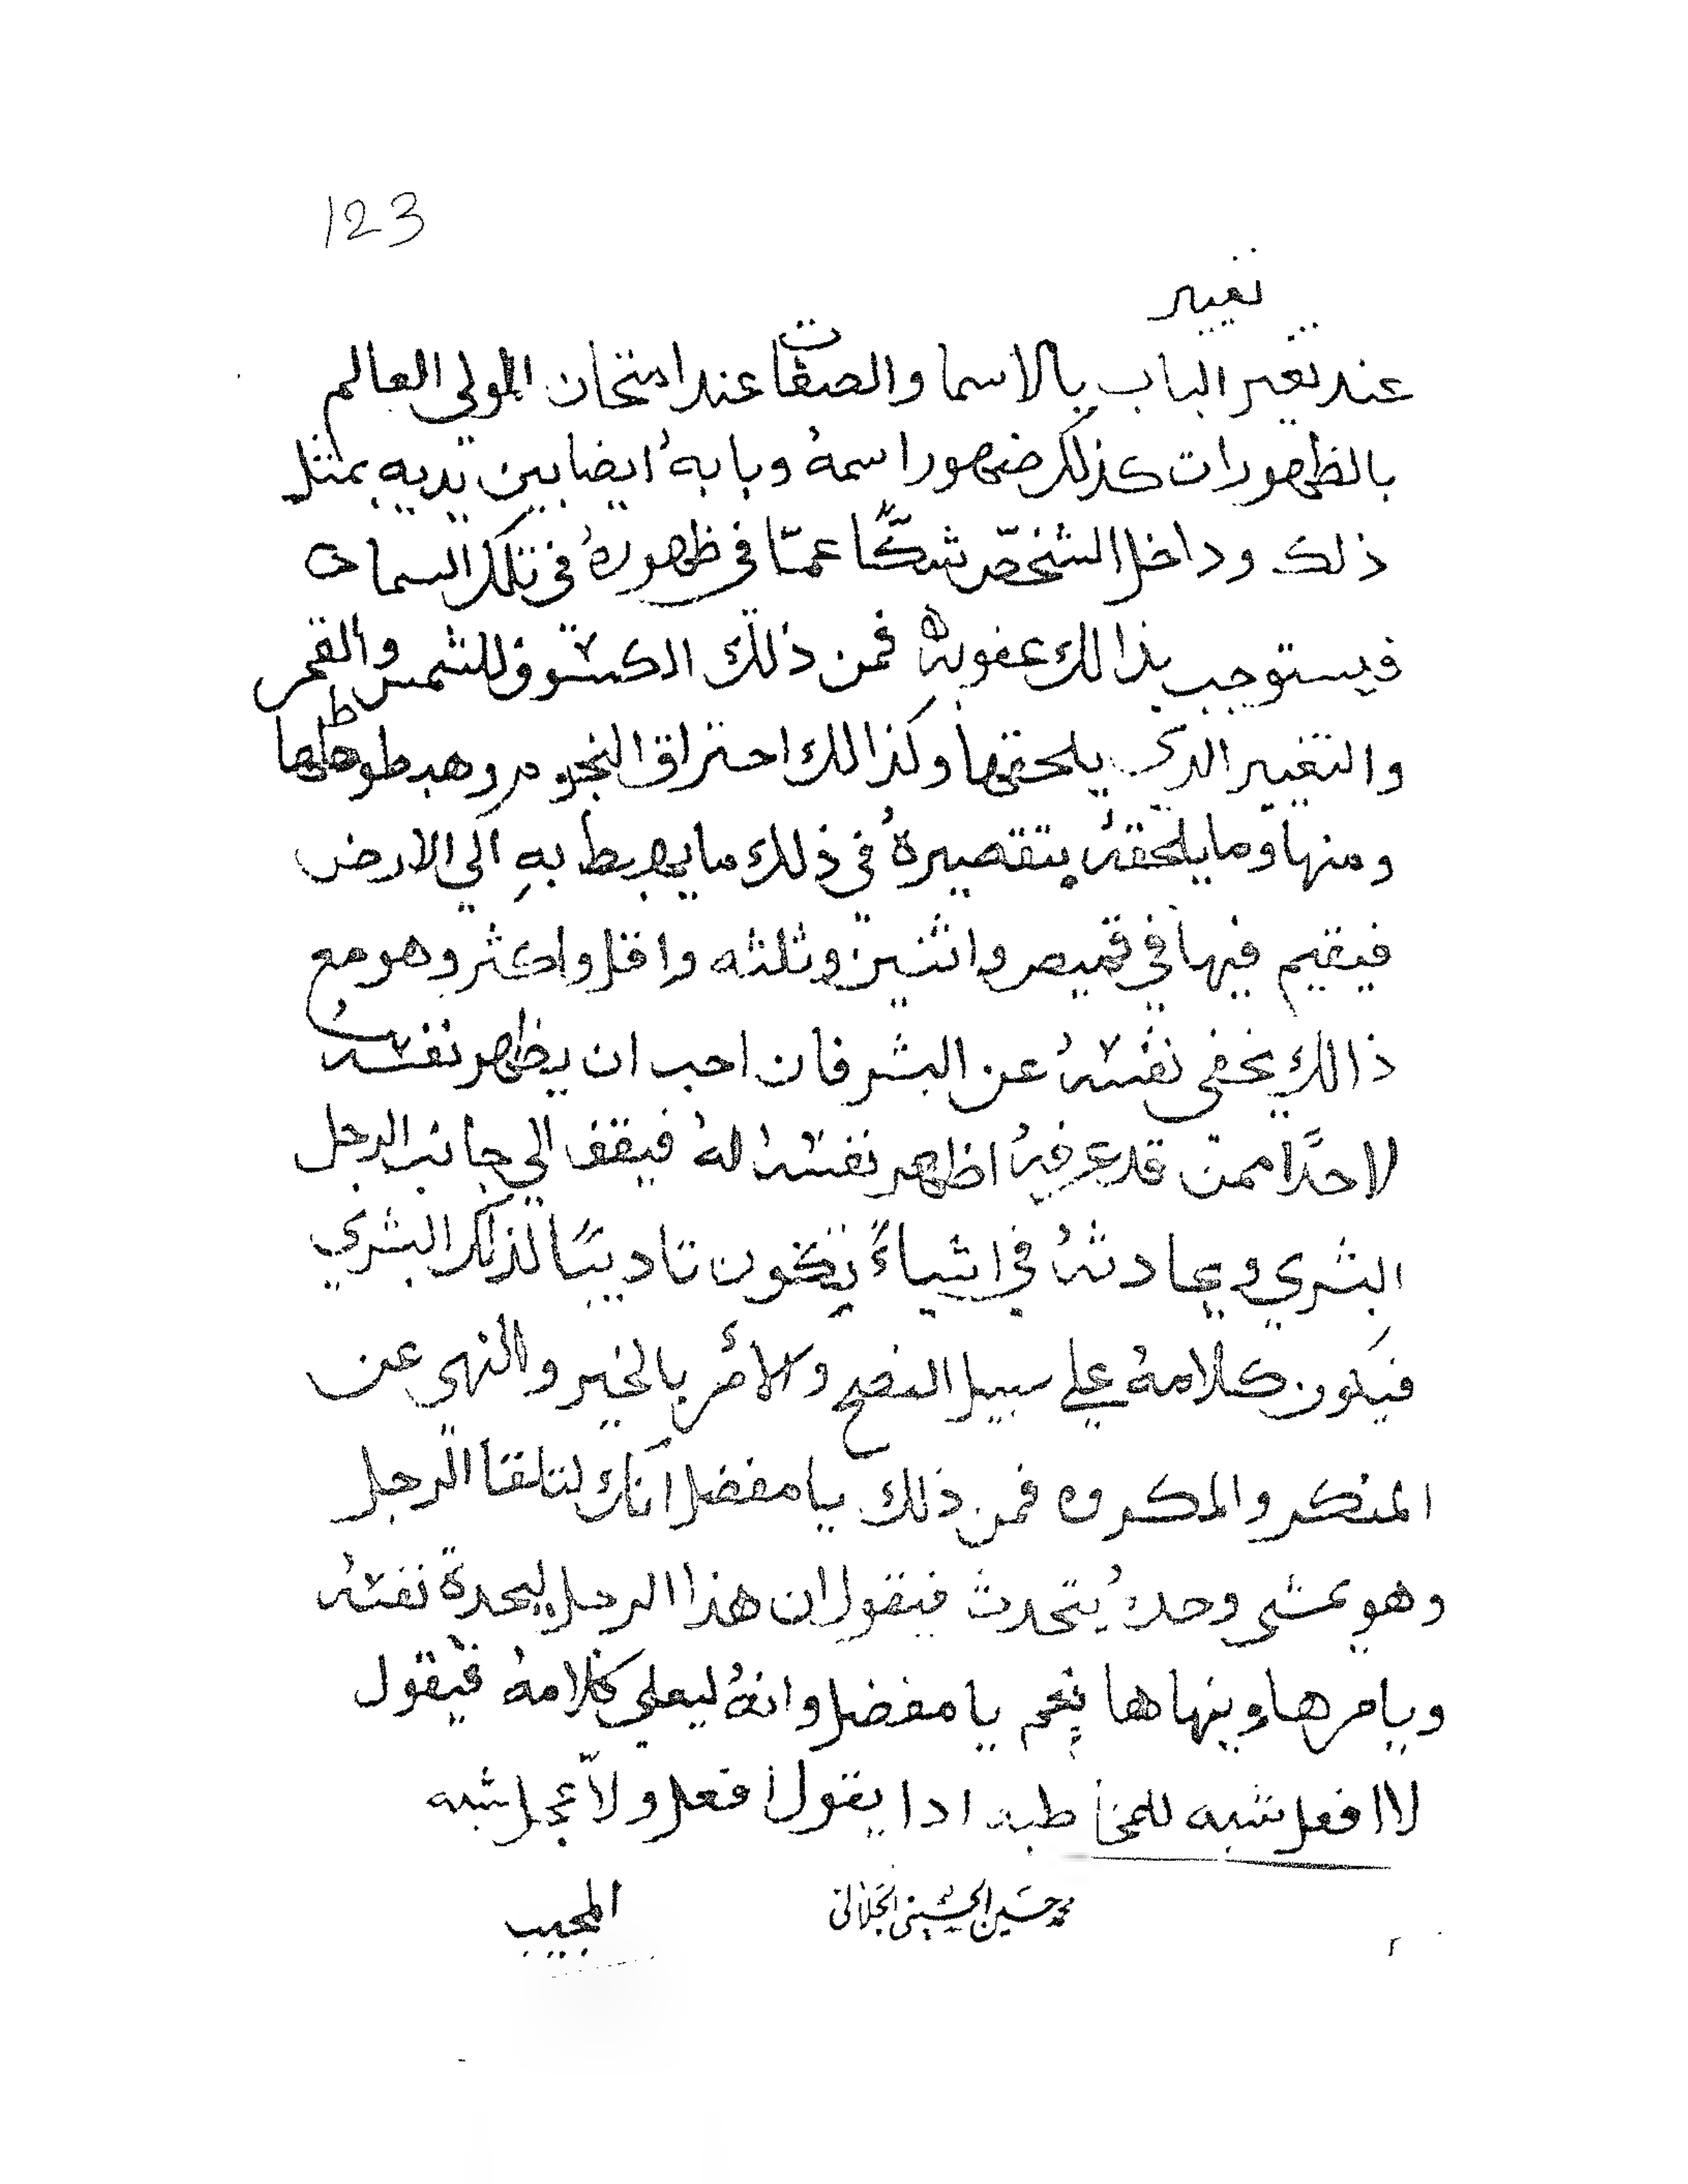 123
تغيير
عند تغير الباب بالاسما والصفات عند امتحان المولي العالم
بالظهورات كذلك ضهور اسمهُ وبابهُ ايضا بين يديه بمثل
ذلك وداخل الشخص شكًّا عمّا في ظهورهُ في تلك السمات
فيستوجب بذالك عقوبة فمن ذلك الكسوف للشمس والقمر
والتغيير الذي يلحقها وكذالك احتراق النجوم وهبطوطها
ومنها وما يلحقهُ بتقصيرهُ في ذلك ما يهبط بهِ الي الارض
فيقيم فيها في قميص واثنين وثلثه واقل واكثر وهو مع
ذالك يخفي نفسهُ عن البشر فان احب ان يظهر نفسهُ
لاحدًا ممن قد عرفهُ اظهر نفسهُ لهُ فيقف الي جانب الرجل
البشري ويحادثهُ في اشياءً تكون تاديبًا لذلك البشري
فيكون كلامهُ علي سبيل النصح والأمر بالخير والنهي عن
المنكر والمكروه فمن ذلك يا مفضل انك لتلقا الرجل
وهو يمشي وحدهُ يتحدث فيقول ان هذا الرجل ليحدة نفسهُ
ويامرها وينهاها نعم يا مفضل وانهُ ليعلي كلامهُ فيقول
لا افعل شبه للمخاطبه ادا يقول افعل ولا عجل شبه
محمد حسين الحسيني الجلالي
المجيب